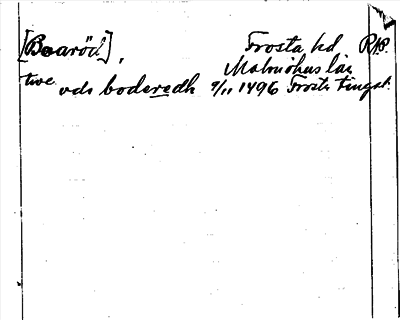 [Boaröd], Frosta hd RAP.
Malmöhus län
twe vds boderedh 9/11 1496 Frosta tingst.